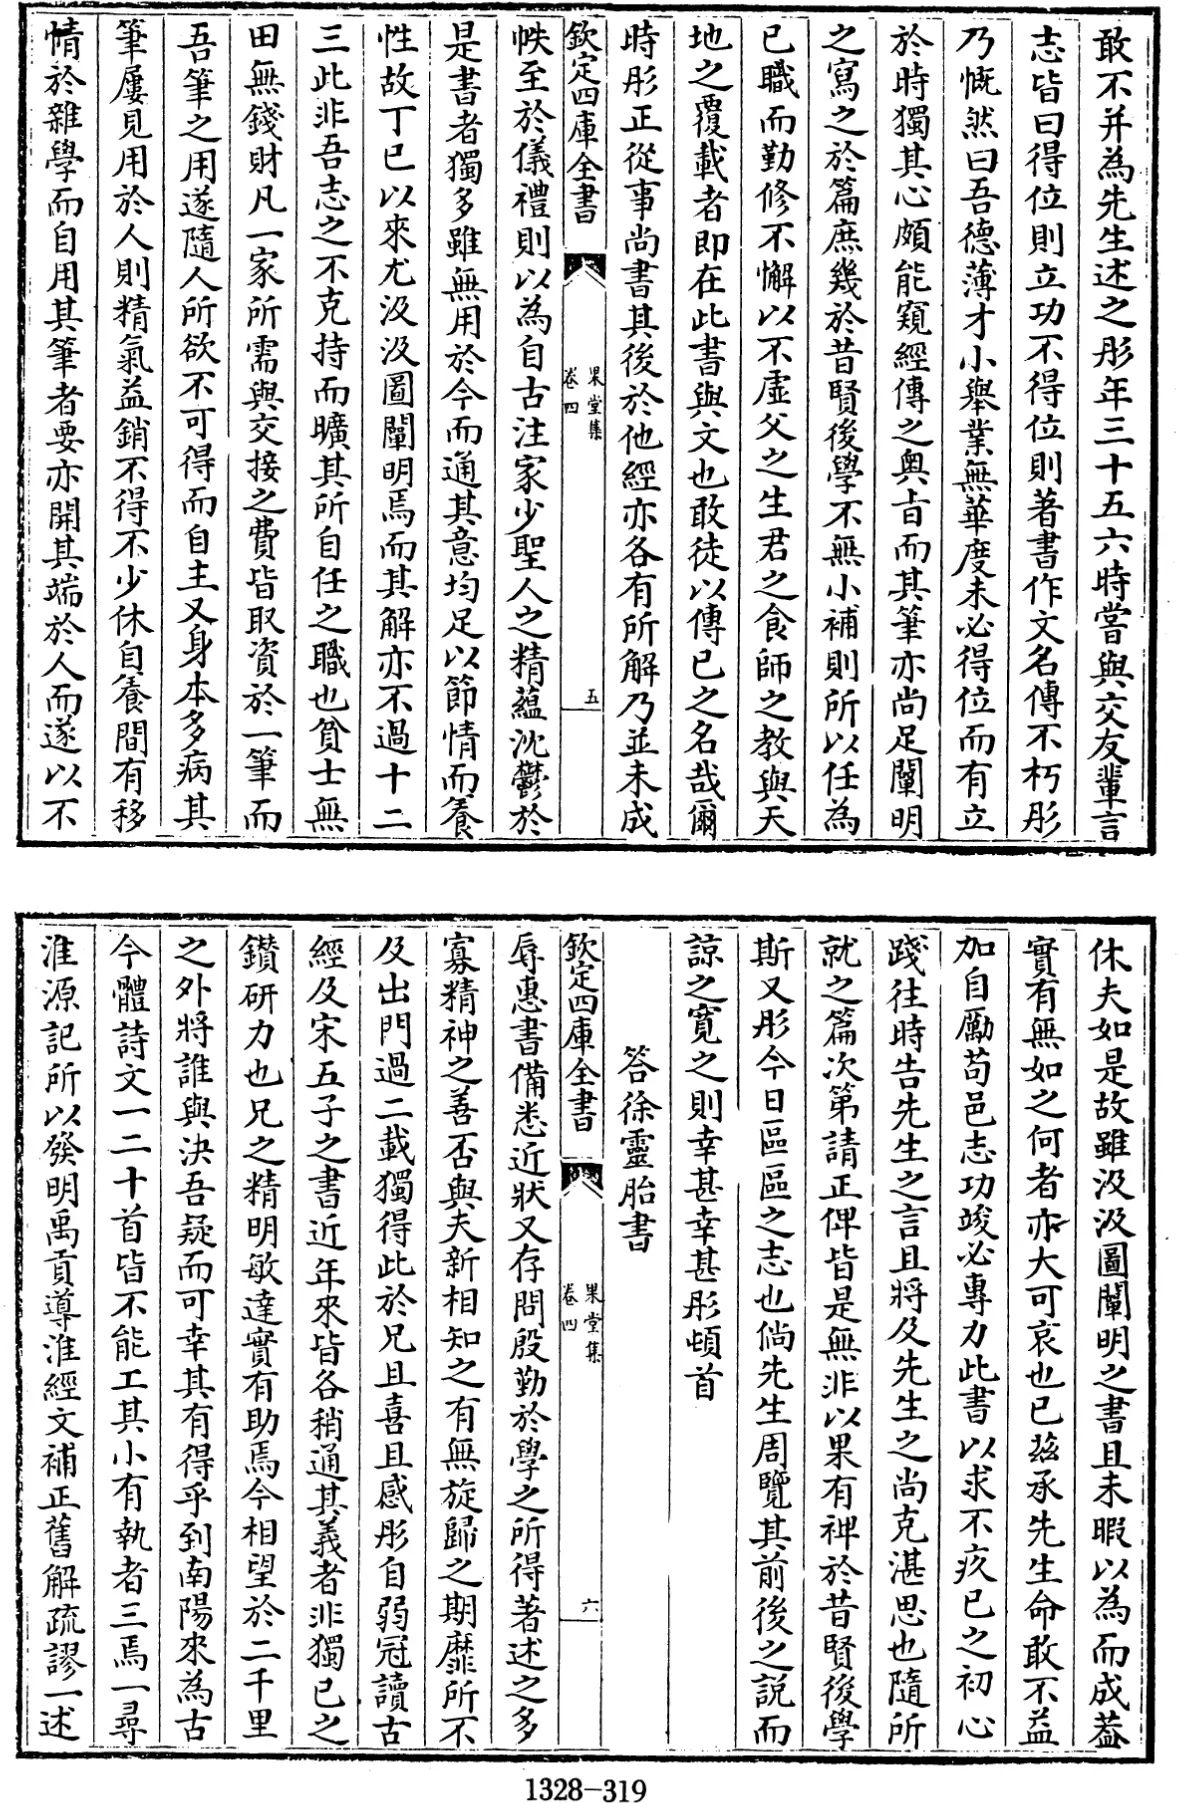 敢不并為先生述之彤年三十五六時嘗與交友輩言
志皆曰得位則立功不得位則著書作文名傳不朽彤
乃慨然曰吾德薄才小舉業無華度未必得位而有立
於時獨其心頗能窺經傳之奥㫖而其筆亦尚足闡明
之寫之於篇庶幾於昔賢後學不無小補則所以任為
已職而勤修不懈以不虛父之生君之食師之教與天
地之覆載者即在此書與文也敢徒以傳已之名哉爾
時彤正從事尚書其後於他經亦各有所解乃並未成
欽定四庫全書
果堂集
卷四
五
帙至於儀禮則以為自古注家少聖人之精藴沈鬱於
是書者獨多雖無用於今而通其意均足以節情而養
性故丁已以來尤汲汲圖闡明焉而其解亦不過十二
三此非吾志之不克持而曠其所自任之職也貧士無
田無錢財凡一家所需與交接之費皆取資於一筆而
吾筆之用遂隨人所欲不可得而自主又身本多病其
筆屢見用於人則精氣益銷不得不少休自養間有移
情於雜學而自用其筆者要亦開其端於人而遂以不
休夫如是故雖汲汲圖闡明之書且未暇以為而成葢
實有無如之何者亦大可哀也已茲承先生命敢不益
加自勵苟邑志功竣必專力此書以求不疚已之初心
踐往時告先生之言且將及先生之尚克湛思也隨所
就之篇次第請正俾皆是無非以果有裨於昔賢後學
斯又彤今日區區之志也倘先生周覽其前後之說而
諒之寛之則幸甚幸甚彤頓首
答徐靈胎書
欽定四庫全書
果堂集
卷四
六
辱惠書備悉近狀又存問殷勤於學之所得著述之多
寡精神之善否與夫新相知之有無旋歸之期靡所不
及出門過二載獨得此於兄且喜且感彤自弱冠讀古
經及宋五子之書近年來皆各稍通其義者非獨已之
鑽研力也兄之精明敏達實有助焉今相望於二千里
之外將誰與決吾疑而可幸其有得乎到南陽來為古
今體詩文一二十首皆不能工其小有執者三焉一尋
淮源記所以發明禹貢導淮經文補正舊解疏謬一述
1328-319